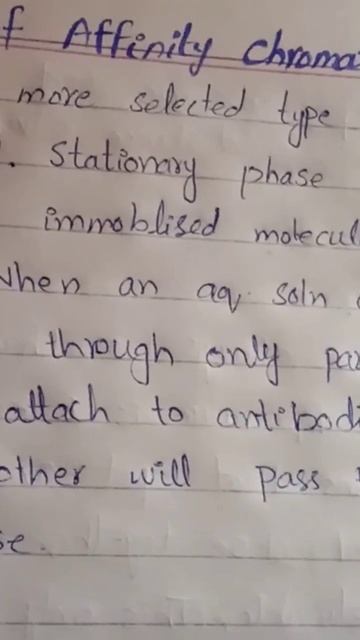 f Affinity Chroma
more selected type
. Stationary phase
immoblised molecul
when an aq. soln
through only pa
attach to antibodi
other will pass
se.